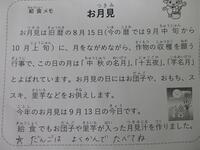 給食メモ
お月見
お月見は旧暦の8月15日(今の暦では9月中旬から
10月上旬)に、月をながめながら、作物の収穫を願う
行事で、この日の月は「中秋の名月」、「十五夜」、「芋名月」
とよばれています。お月見の日にはお団子や、おもち、ス
スキ、里芋などをお供えします。
今年のお月見は9月13日の今日です。
給食でもお団子や里芋が入った月見汁を作りました。
☆だんごは よくかんで たべてね